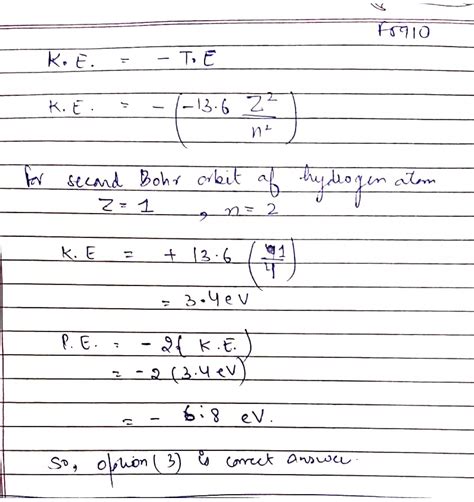 F5910
K.E. = - T.E
K.E. = - (-13.6 Z²/n²)
for second Bohr orbit of hydrogen atom
Z = 1 , n = 2
K.E = + 13.6 (1/4)
= 3.4 eV
P.E. = -2{ K.E.)
= -2 (3.4 eV)
= - 6.8 eV.
So, option (3) is correct answer.